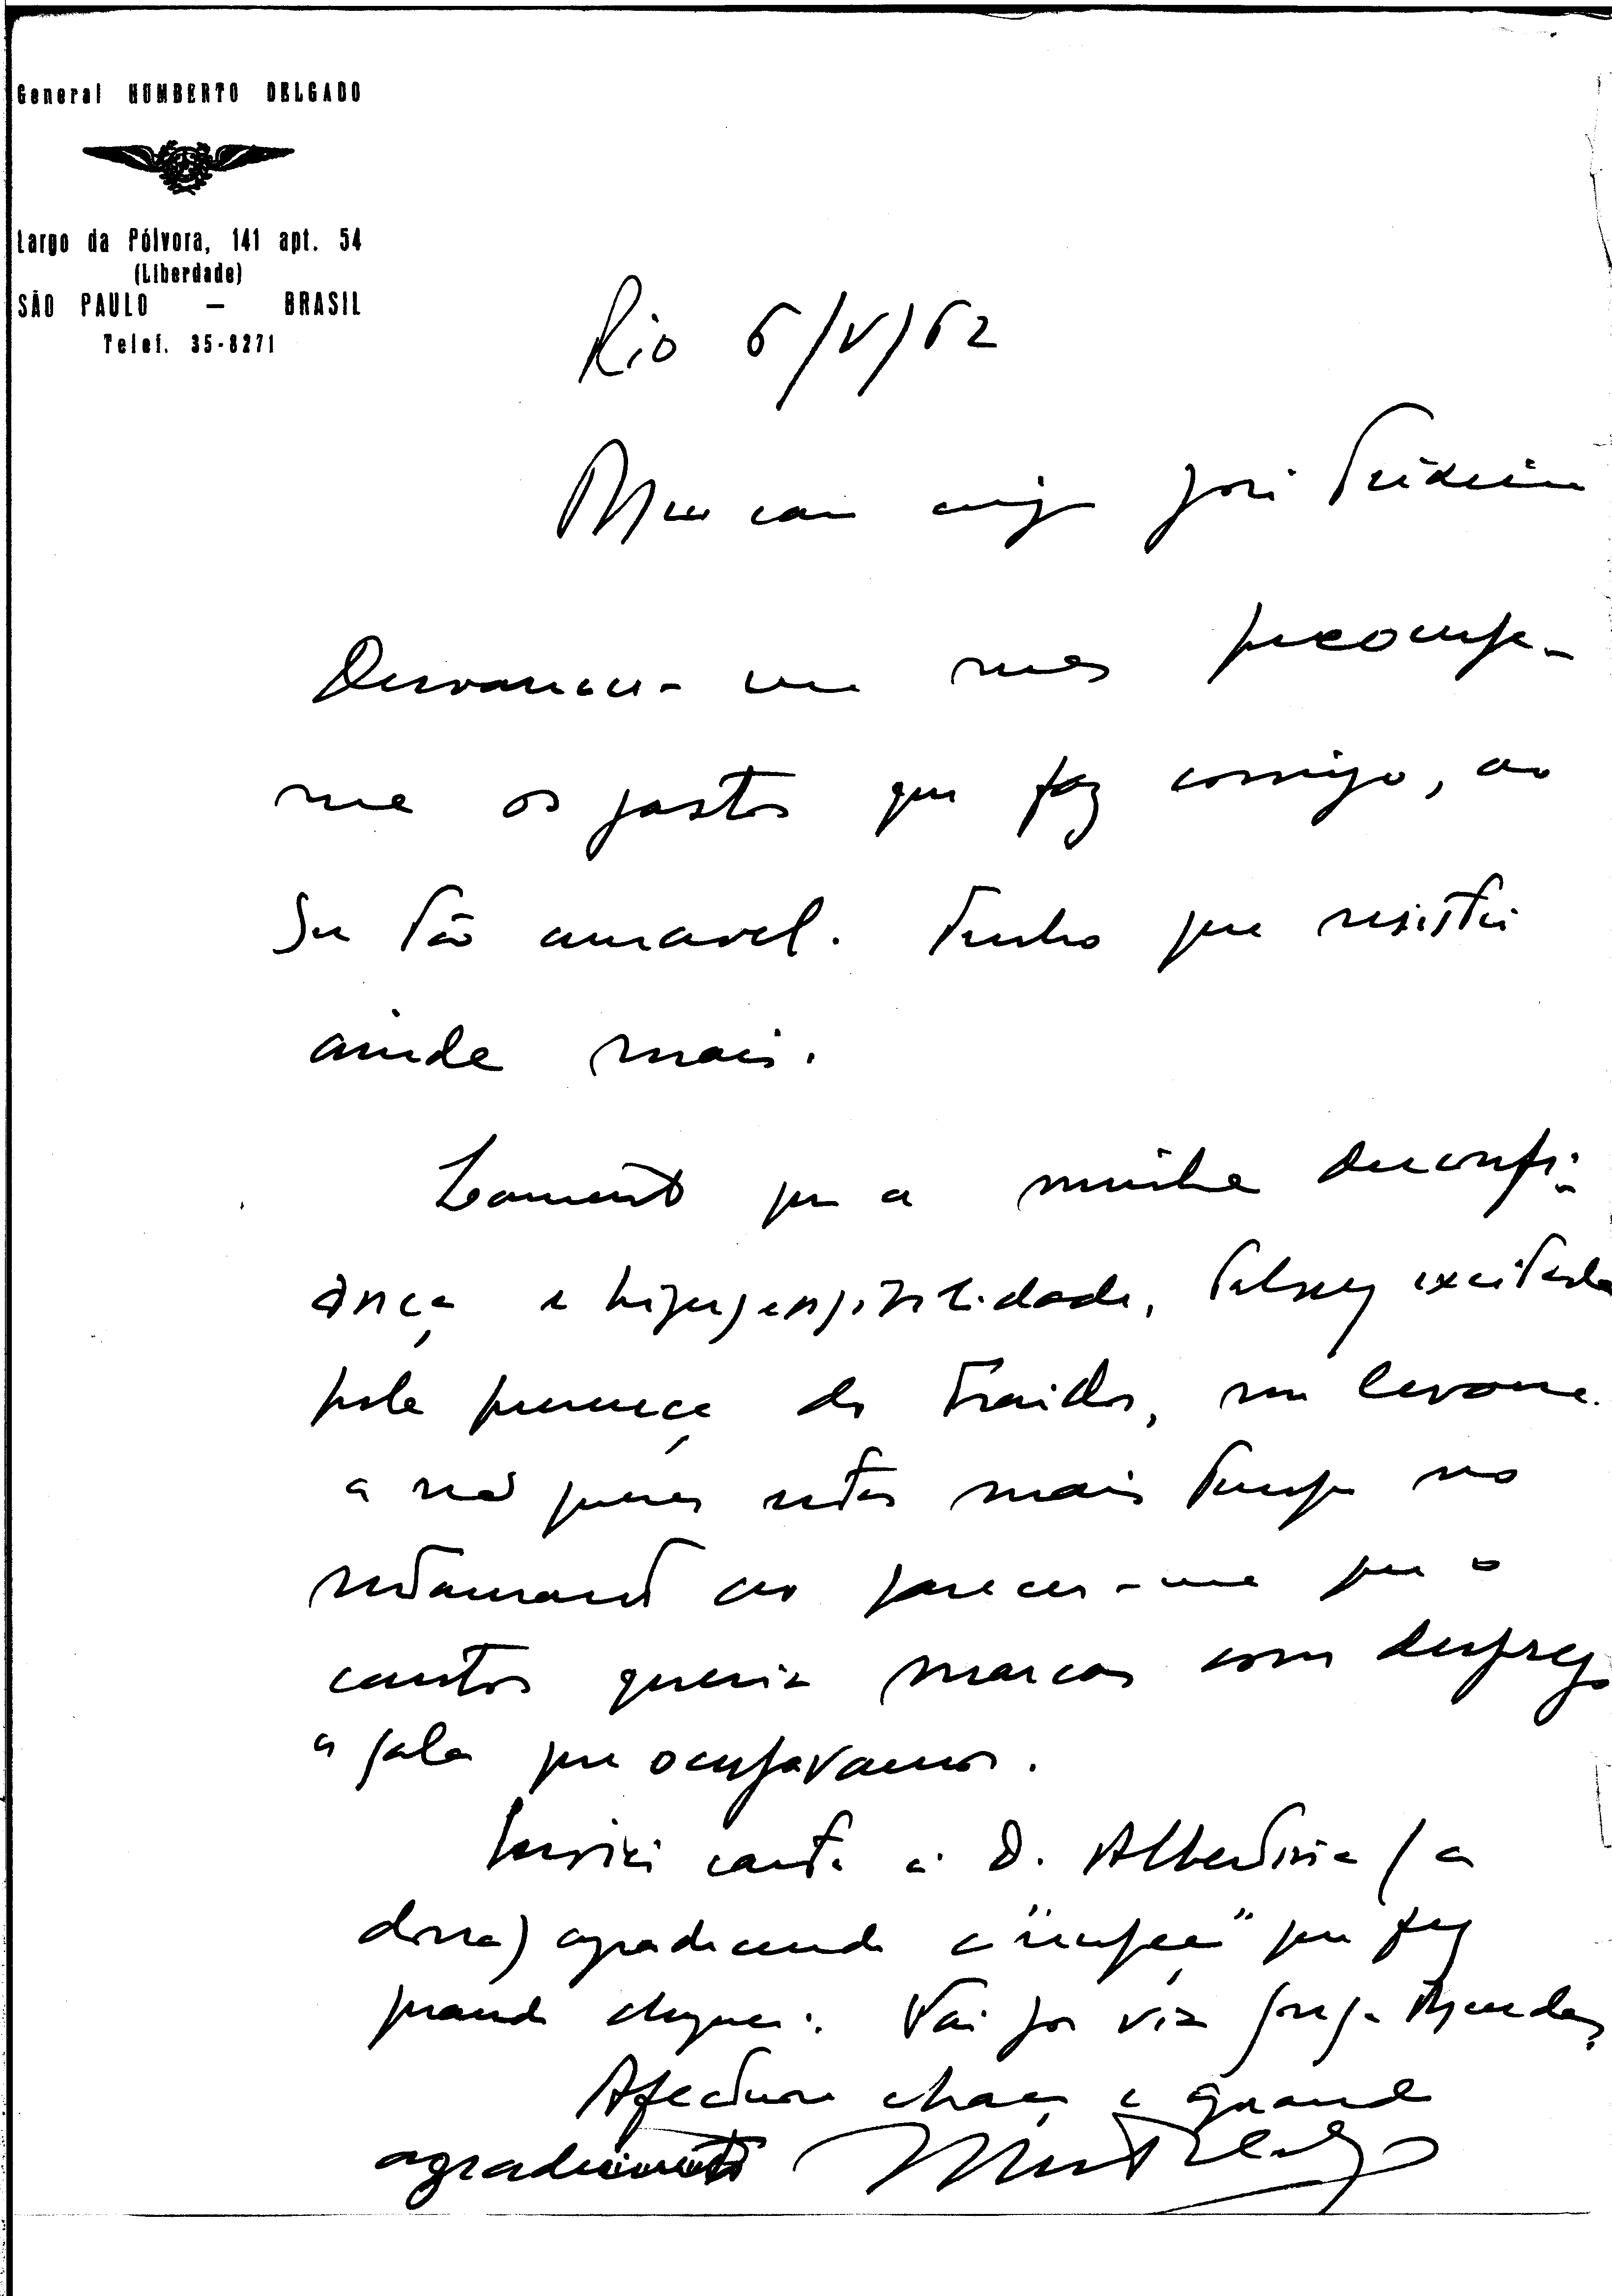 General HUMBERTO DELGADO
Largo da Pólvora, 141 apt. 54
(Liberdade)
SÃO PAULO — BRASIL
Telef. 35-8271
Rio 6/V/62
Meu caro amigo José
Desvanece-me mas preocupa-
me os gastos que faz comigo, ao
ser tão amavel. Tenho que resistir
ainda mais.
Lamento que a minha desconfi-
ança e hipersensibilidade, talvez excitada
pela presença do traidor, me levou
a não querer estar mais tempo no
restaurante ao parecer-me que o
cantor queria marcar com desprezo
a sala que ocupavamos.
Escrevi carta à D. Albertina (a
dona) agradecendo a que fez
quando cheguei. Vai por via
Afectuoso abraço e grande
agradecimento